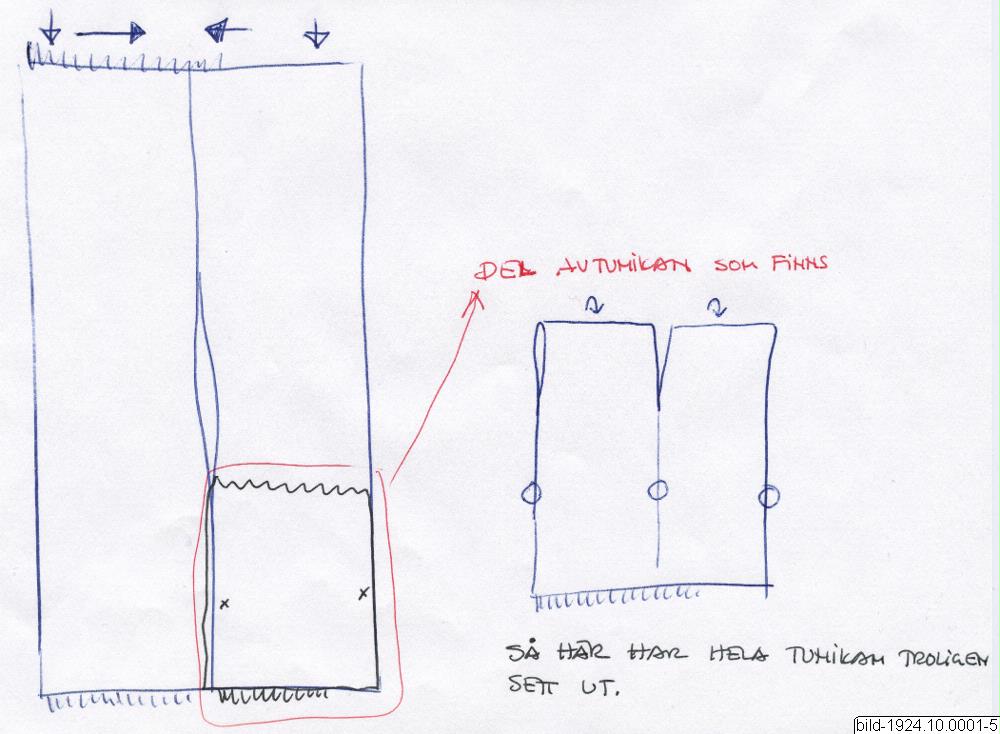 DEL AV TUNIKAN SOM FINNS
SÅ HÄR HAR HELA TUNIKAN TROLIGEN
SETT UT.
x x
bild-1924.10.0001-5